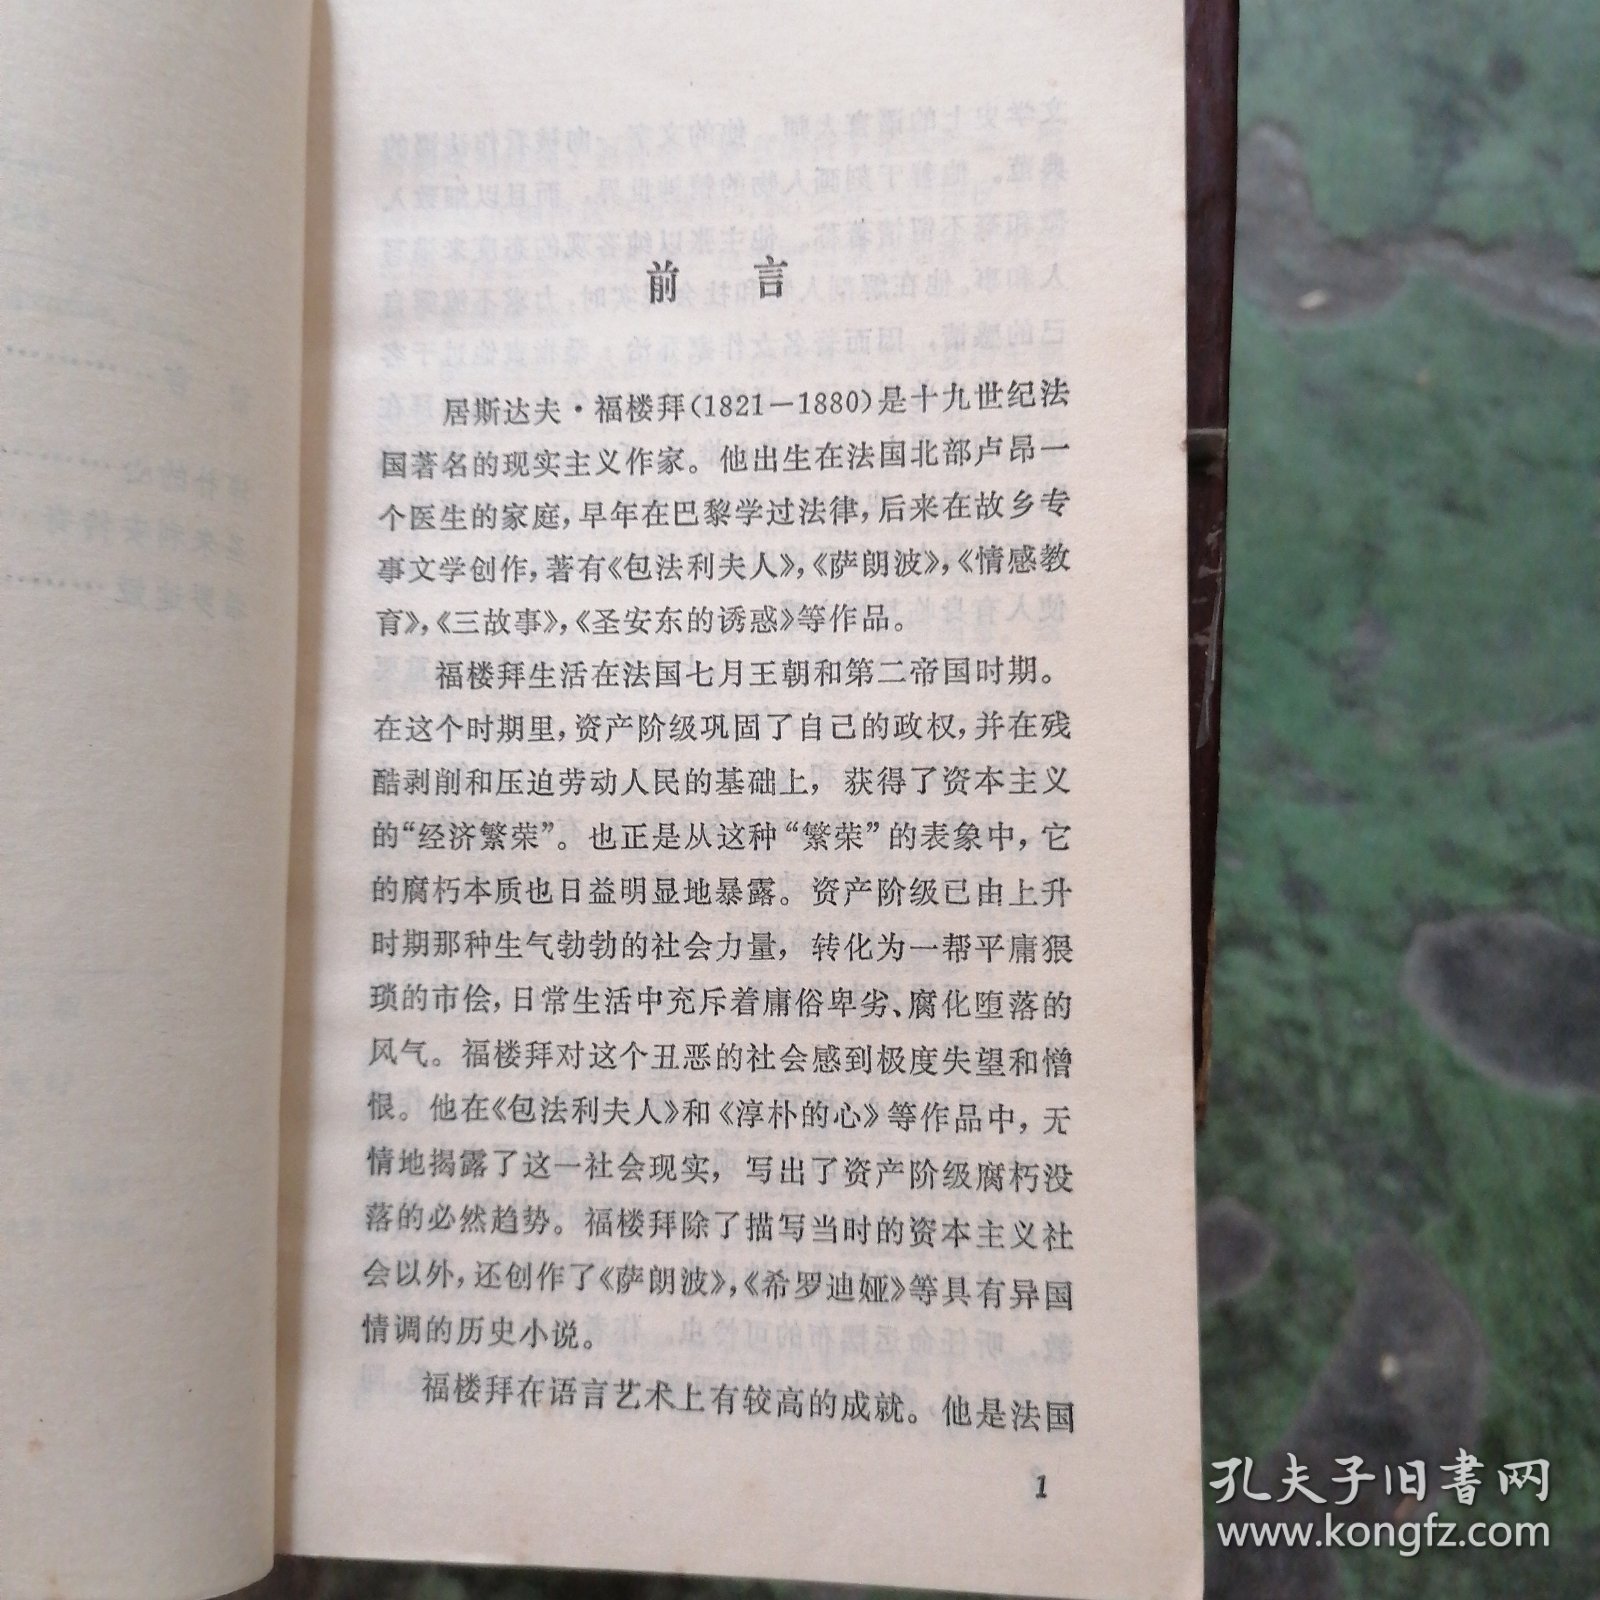 前言
居斯达夫·福楼拜(1821—1880)是十九世纪法
国著名的现实主义作家。他出生在法国北部卢昂一
个医生的家庭,早年在巴黎学过法律,后来在故乡专
事文学创作,著有《包法利夫人》,《萨朗波》,《情感教
育》,《三故事》,《圣安东的诱惑》等作品。
福楼拜生活在法国七月王朝和第二帝国时期。
在这个时期里,资产阶级巩固了自己的政权,并在残
酷剥削和压迫劳动人民的基础上,获得了资本主义
的“经济繁荣”。也正是从这种“繁荣”的表象中,它
的腐朽本质也日益明显地暴露。资产阶级已由上升
时期那种生气勃勃的社会力量,转化为一帮平庸猥
琐的市侩,日常生活中充斥着庸俗卑劣、腐化堕落的
风气。福楼拜对这个丑恶的社会感到极度失望和憎
恨。他在《包法利夫人》和《淳朴的心》等作品中,无
情地揭露了这一社会现实,写出了资产阶级腐朽没
落的必然趋势。福楼拜除了描写当时的资本主义社
会以外,还创作了《萨朗波》,《希罗迪娅》等具有异国
情调的历史小说。
福楼拜在语言艺术上有较高的成就。他是法国
1
孔夫子旧书网
www.kongfz.com